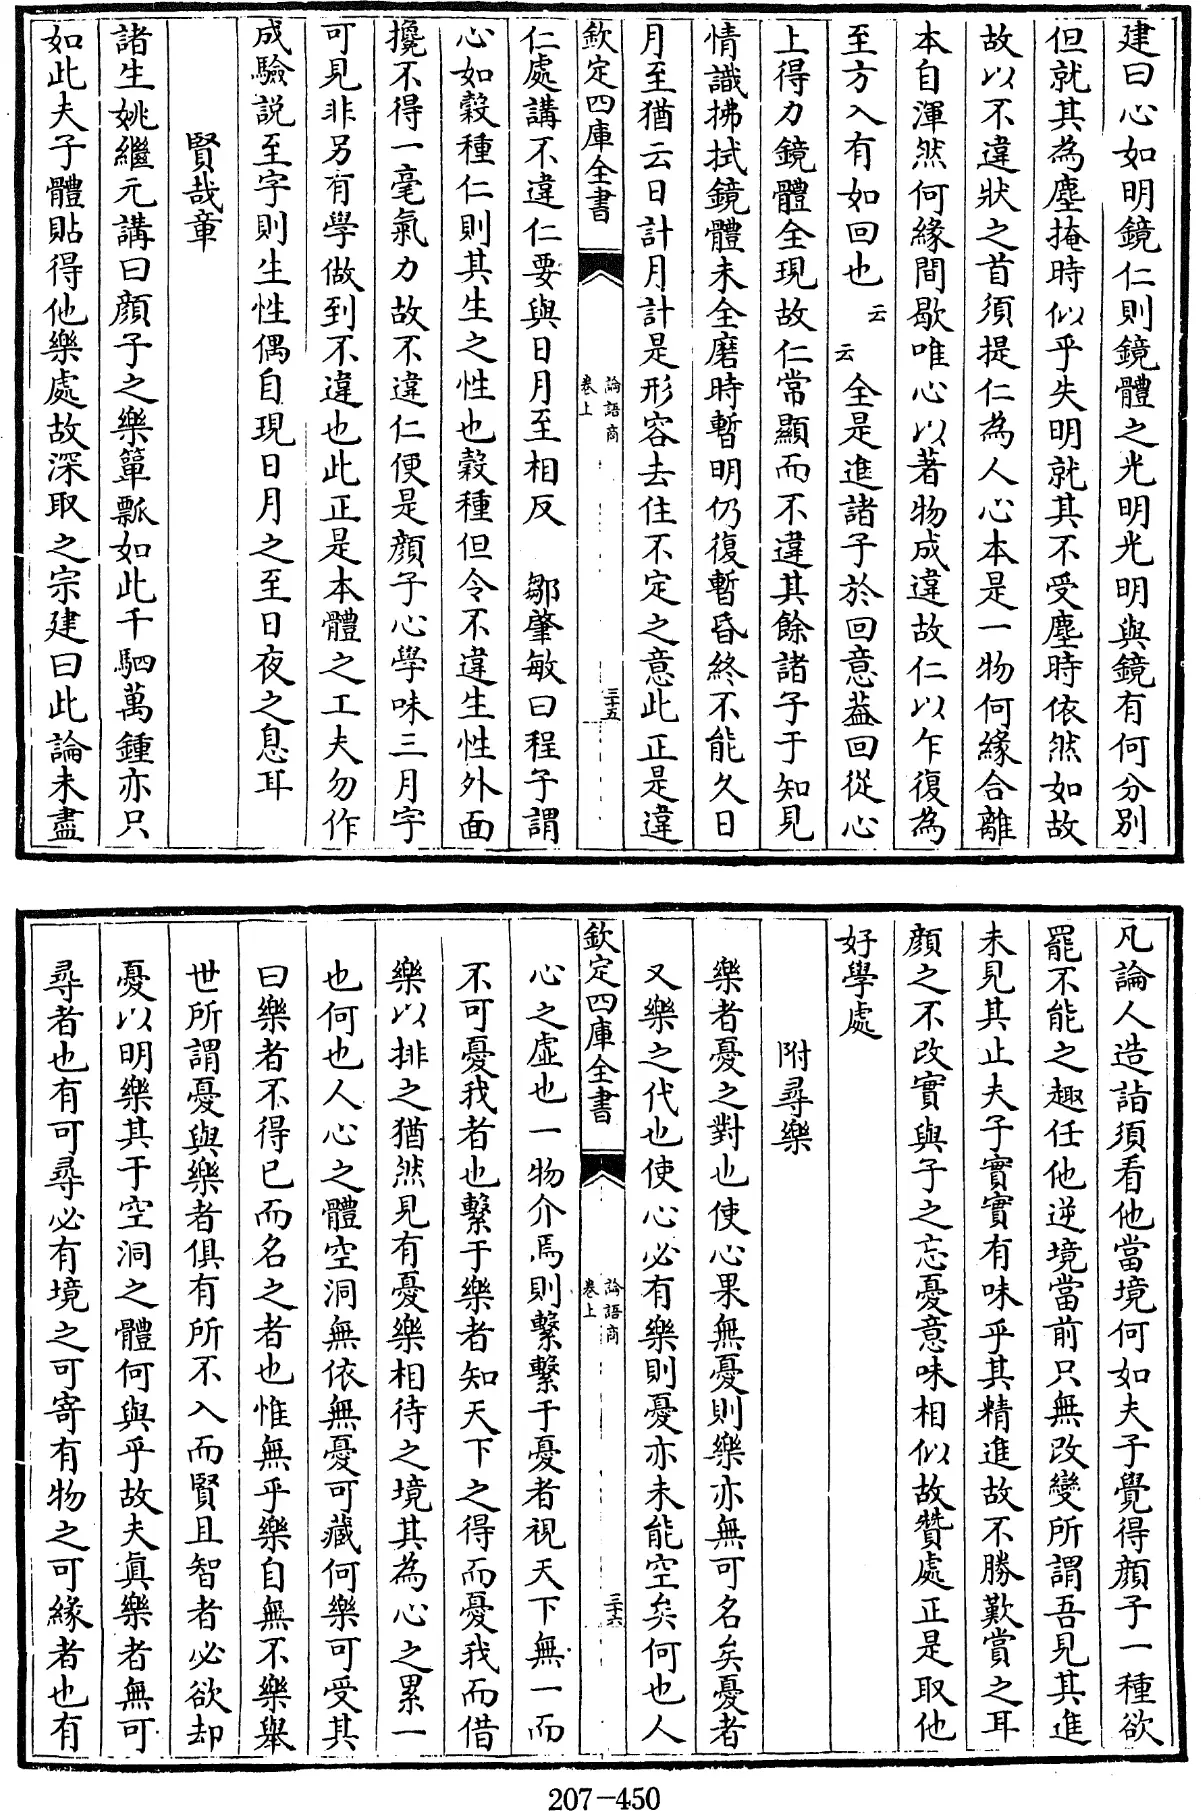 建曰心如明鏡仁則鏡體之光明光明與鏡有何分别
但就其為塵掩時似乎失明就其不受塵時依然如故
故以不違狀之首須提仁為人心本是一物何緣合離
本自渾然何緣間歇唯心以著物成違故仁以乍復為
至方入有如回也云云全是進諸子於回意葢回從心
上得力鏡體全現故仁常顯而不違其餘諸子于知見
情識拂拭鏡體未全磨時暫明仍復暫昏終不能久日
月至猶云日計月計是形容去住不定之意此正是違
欽定四庫全書
論語商
卷上
三十五
仁處講不違仁要與日月至相反　鄒肇敏曰程子謂
心如穀種仁則其生之性也穀種但令不違生性外面
攙不得一毫氣力故不違仁便是顔子心學味三月字
可見非另有學做到不違也此正是本體之工夫勿作
成驗説至字則生性偶自現日月之至日夜之息耳
賢哉章
諸生姚繼元講曰顔子之樂簞瓢如此千駟萬鍾亦只
如此夫子體貼得他樂處故深取之宗建曰此論未盡
凡論人造詣須看他當境何如夫子覺得顔子一種欲
罷不能之趣任他逆境當前只無改變所謂吾見其進
未見其止夫子實實有味乎其精進故不勝歎賞之耳
顔之不改實與子之忘憂意味相似故贊處正是取他
好學處
附尋樂
樂者憂之對也使心果無憂則樂亦無可名矣憂者
又樂之代也使心必有樂則憂亦未能空矣何也人
欽定四庫全書
論語商
卷上
三十六
心之虛也一物介焉則繫繫于憂者視天下無一而
不可憂我者也繫于樂者知天下之得而憂我而借
樂以排之猶然見有憂樂相待之境其為心之累一
也何也人心之體空洞無依無憂可藏何樂可受其
曰樂者不得已而名之者也惟無乎樂自無不樂舉
世所謂憂與樂者俱有所不入而賢且智者必欲却
憂以明樂其于空洞之體何與乎故夫眞樂者無可
尋者也有可尋必有境之可寄有物之可緣者也有
207-450